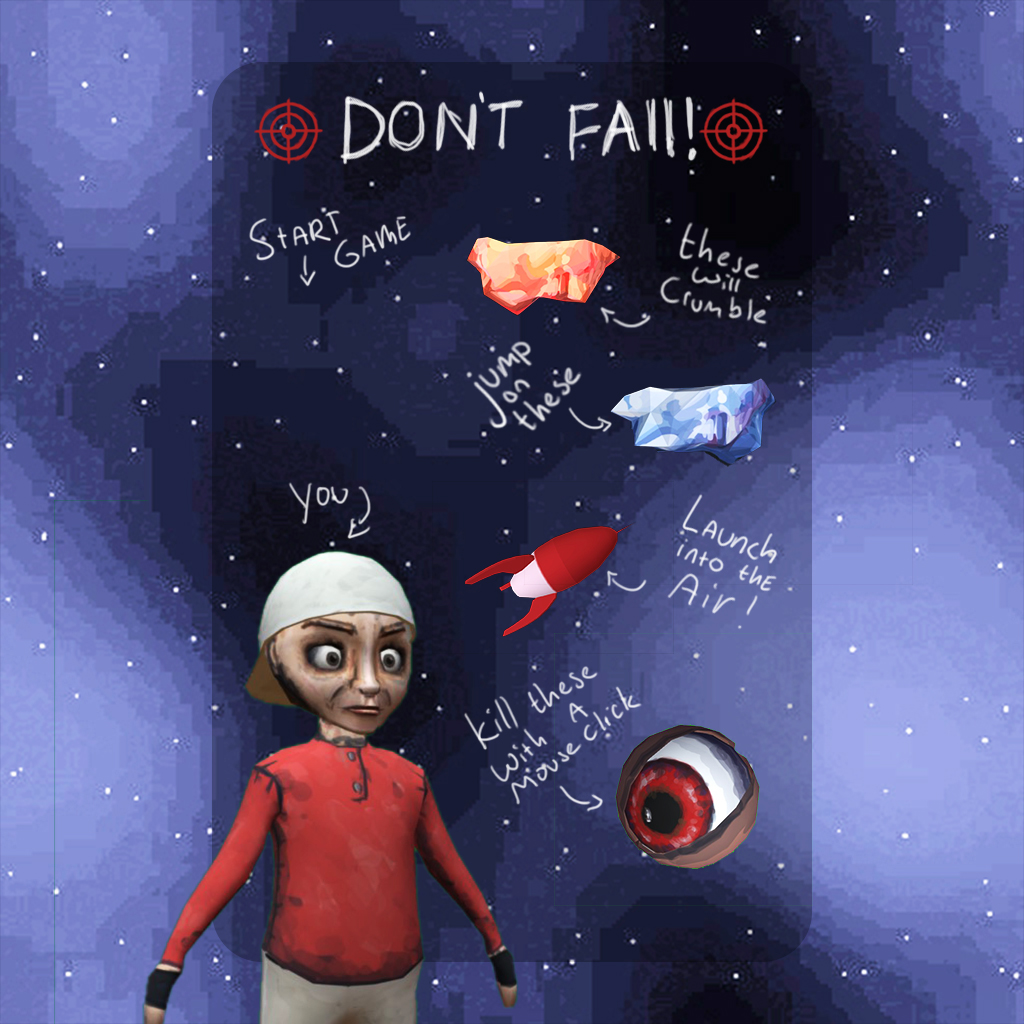 DON'T FAll!
StARt
GAME
these
will
Crumble
jump
on
these
YOU
LAunch
into thE
Air!
kill these
with A
mouse click